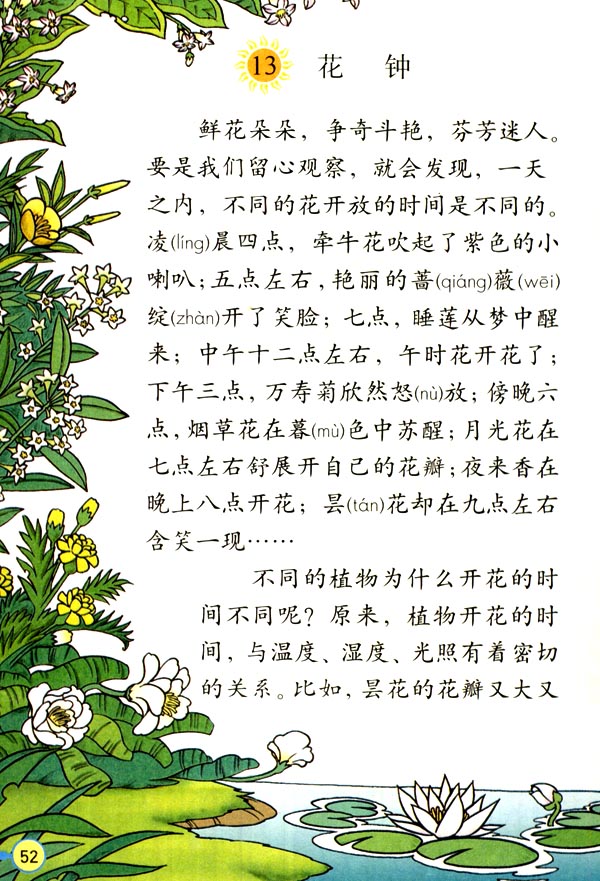 13 花 钟
鲜花朵朵，争奇斗艳，芬芳迷人。
要是我们留心观察，就会发现，一天
之内，不同的花开放的时间是不同的。
凌(líng)晨四点，牵牛花吹起了紫色的小
喇叭；五点左右，艳丽的蔷(qiáng)薇(wēi)
绽(zhàn)开了笑脸；七点，睡莲从梦中醒
来；中午十二点左右，午时花开花了；
下午三点，万寿菊欣然怒(nù)放；傍晚六
点，烟草花在暮(mù)色中苏醒；月光花在
七点左右舒展开自己的花瓣；夜来香在
晚上八点开花；昙(tán)花却在九点左右
含笑一现……
不同的植物为什么开花的时
间不同呢？原来，植物开花的时
间，与温度、湿度、光照有着密切
的关系。比如，昙花的花瓣又大又
52